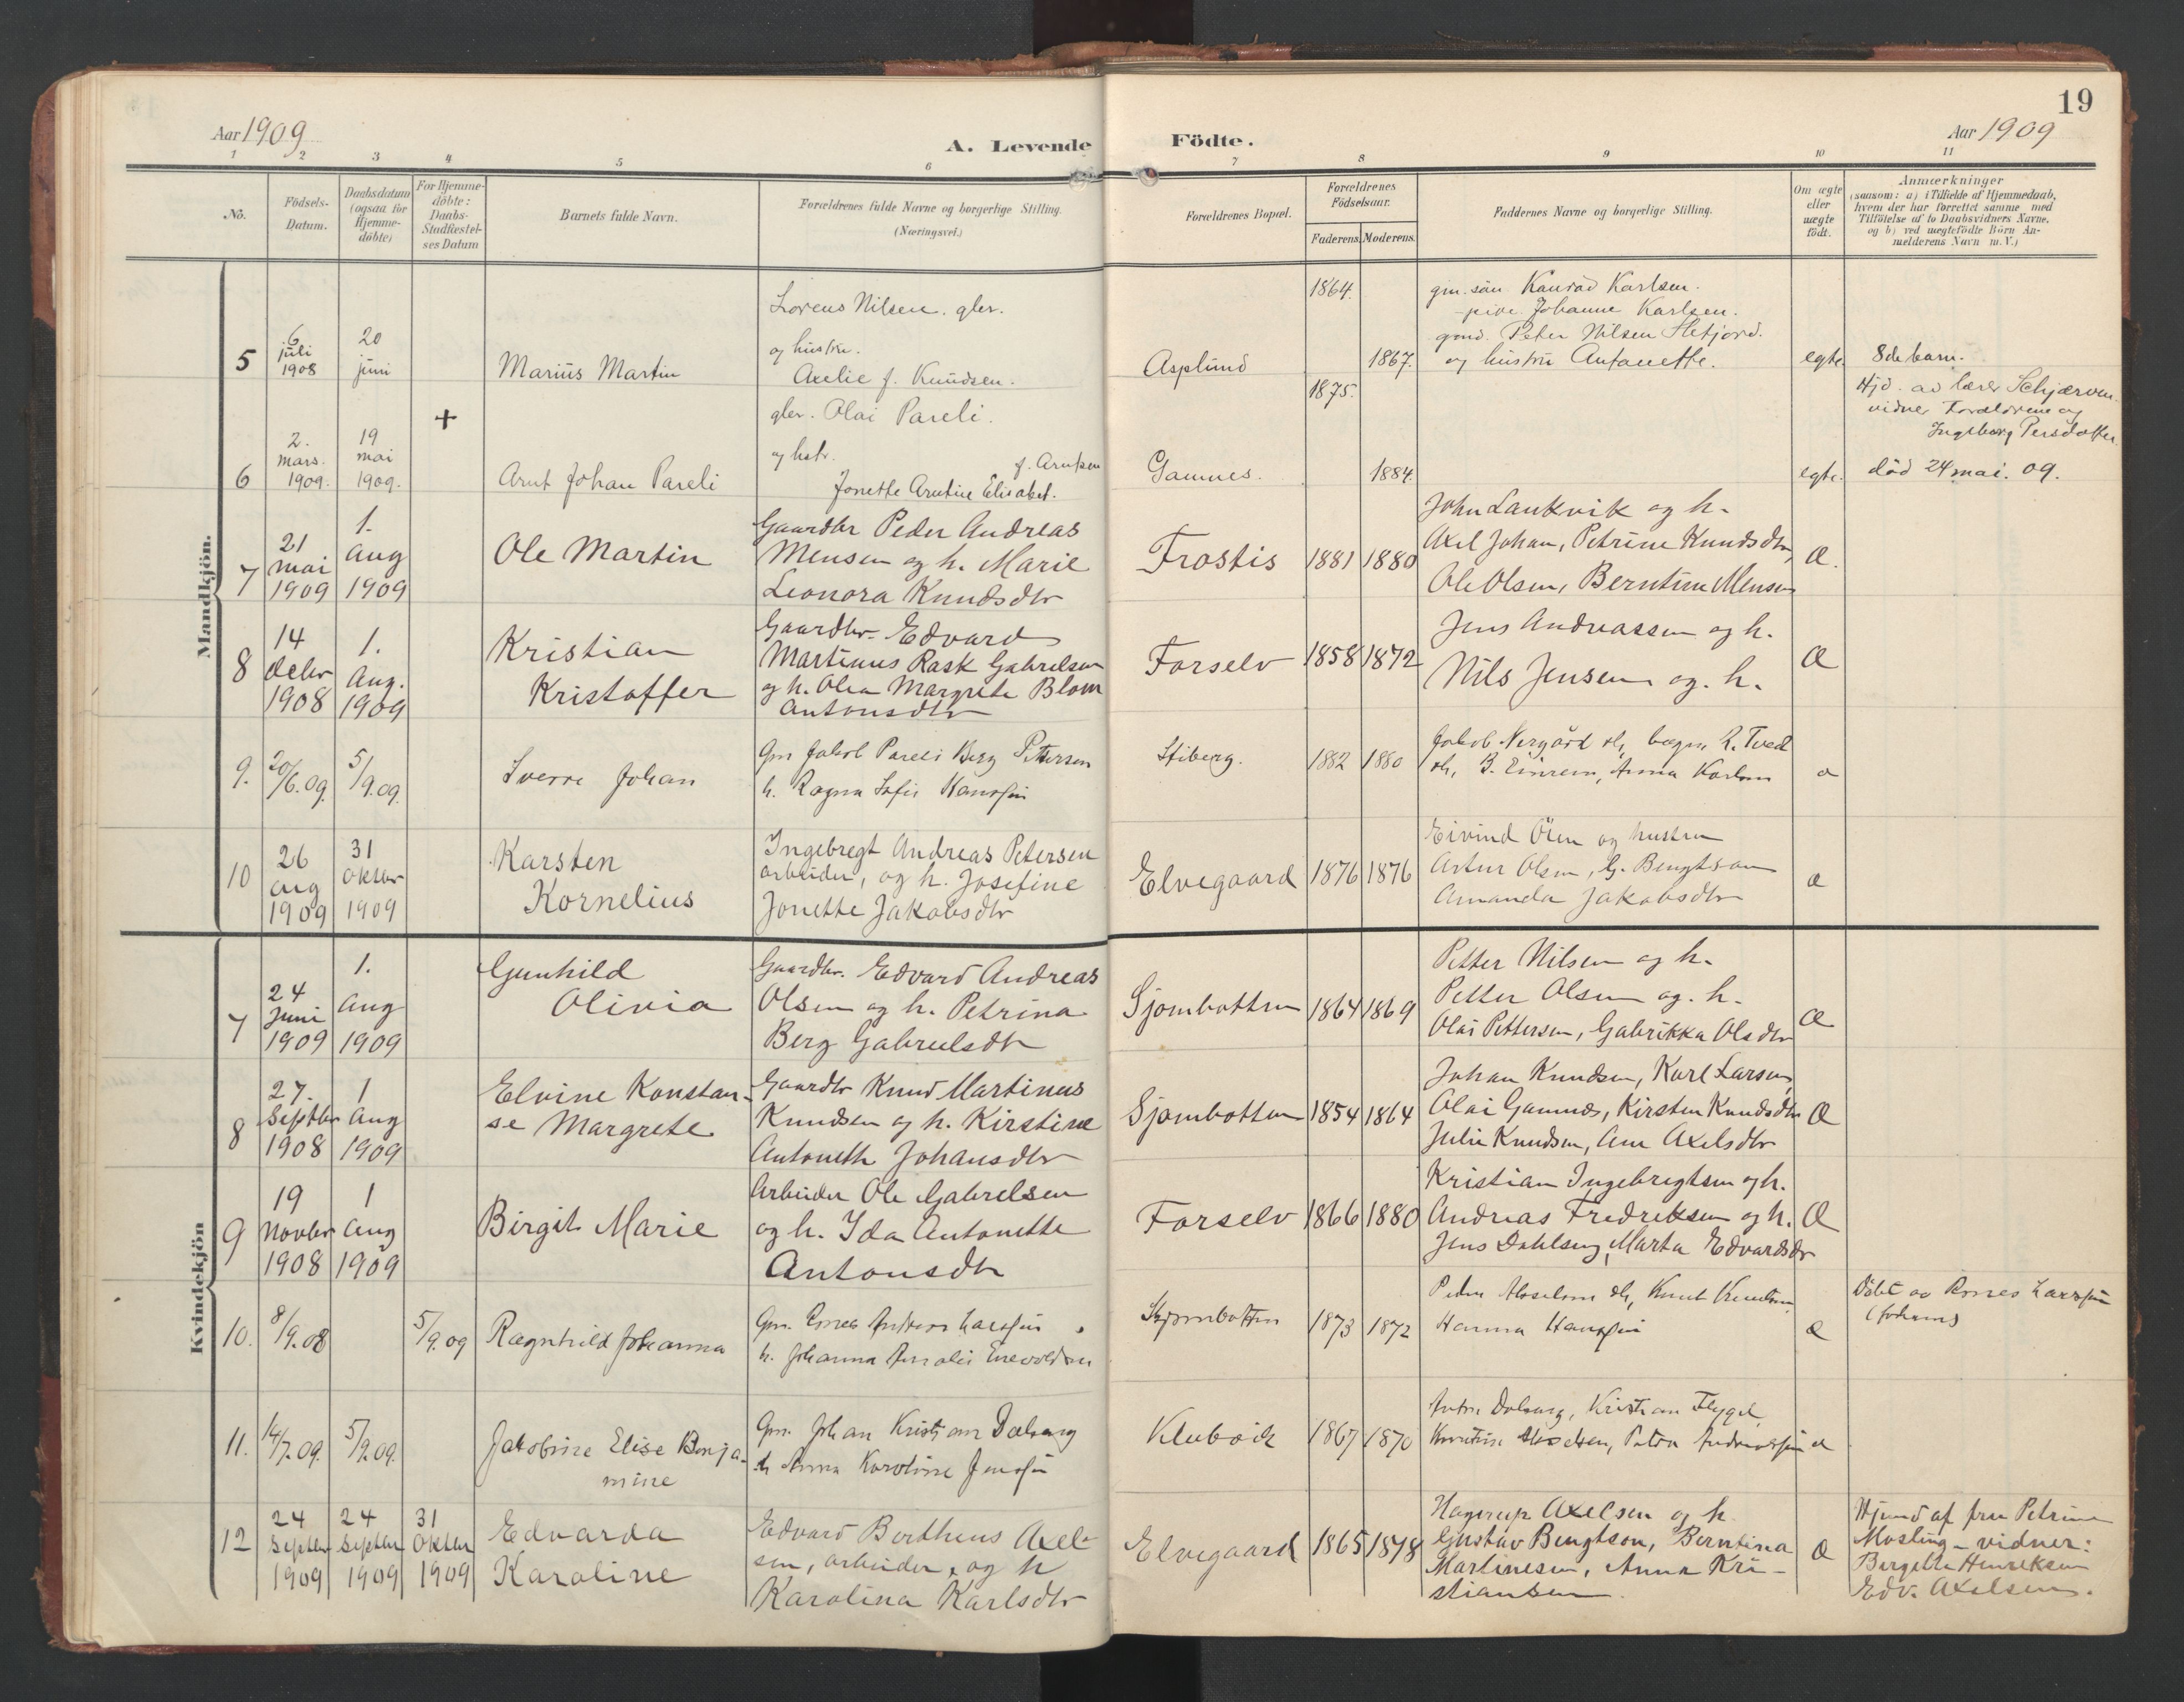 19
Aar 1909
A. Levende Födte.
Aar 1909
1 2 3 4 5 6 7 8 9 10 11
No.
Födsels-
Datum.
Daabsdatum
(ogsaa for
Hjemme-
döbte)
For Hjemme-
döbte:
Daabs-
Stadfæstel-
ses Datum
Barnets fulde Navn.
Forældrenes fulde Navne og borgerlige Stilling.
(Næringsvei.)
Forældrenes Bopæl.
Forældrenes
Födselsaar.
Faderens. Moderens.
Faddernes Navne og borgerlige Stilling.
Om ægte
eller
uægte
födt.
Anmærkninger
(saasom: a) i Tilfælde af Hjemmedaab,
hvem der har forrettet samme med
Tilföielse af to Daabsvidners Navne,
og b) ved uægtefödte Börn An-
melderens Navn m. V.)
Mandkjön.
5
6
juli
1908
20
juni
Marius Martin
Lorens Nilsen. gbr.
og hustru.
Axelie f. Knudsen.
Asplund
1864.
1867.
Konrad Karlsen.
Johanne Karlsen.
Peter Nilsen
og hustru Antanette.
egte.
8de barn.
6
2.
mars.
1909.
19
mai
1909.
+
Arnt Johan Pareli
gbr. Olai Pareli.
og hstr. f. Arntsen
Jonette Arntine Elisabet.
Gamnes.
1875.
1884.
egte.
Hjd. av lærer Schjærven.
vidner Forældrene og
Ingeborg Persdatter
död 24 mai. 09.
7
21
mai
1909
1.
Aug
1909
Ole Martin
Gaardbr Peder Andreas
Mensen og h. Marie
Leonora Knudsdtr
Frostis
1881 1880
John Lankvik og h.
Axel Johan, Petrine Knudsdtr,
Ole Olsen, Berntine Mensen
Æ.
8
14
Decbr
1908
1.
Aug.
1909
Kristian
Kristoffer
Gaardbr. Edvard
Martinus Rask Gabrielsen
og h. Olea Margrete Blom
Antonsdtr
Forselv
1858 1872
Jens Andreassen og h.
Nils Jensen og. h.
Æ
9.
20/6.09.
5/9.09.
Sverre Johan
Gm Jakob Pareli Berg Pettersen
h. Ragna Sofie
Stiberg.
1882 1880
Jakob Nergård
B. Einrem, Anna Karlsen
æ
10
26
aug
1909
31
Oktbr
1909
Karsten
Kornelius
Ingebregt Andreas Petersen
arbeider, og h. Josefine
Jonette Jakobsdtr
Elvegaard
1876 1876
Eivind Ölen og hustru
Artur Olsen, G. Bengtson
Amanda Jakobsdtr
æ
Kvindekjön
7
24
Juni
1909
1.
Aug
1909
Gunhild
Olivia
Gaardbr. Edvard Andreas
Olsen og h. Petrina
Berg Gabrielsdtr
Sjombotten
1864 1869
Petter Nilsen og h.
Petter Olsen og. h.
Olai Pettersen, Gabrikka Olsdtr
Æ
8
27.
Septbr
1908
1
Aug
1909
Elvine Konstan-
se Margrete
Gaardbr Knud Martinus
Knudsen og h. Kirstine
Antonette Johansdtr
Sjombotten
1854 1864
Johan Knudsen, Karl Larsen,
Olai Gamnes, Kirsten Knudsdtr
Julie Knudsen, Ane Axelsdtr
Æ
9
19
Novbr
1908
1
Aug
1909
Birgit Marie
Arbeider Ole Gabrielsen
og h. Ida Antonette
Antonsdtr
Forselv
1866 1880
Kristian Ingebrigtsen og h.
Andreas Fredriksen og h.
Jens Dahlberg, Marta Edvardsdtr
Æ
10.
8/9.08
5/9.09
Ragnhild Johanna
Gm.
h. Johanna
Sjombotten
1873 1872
Hanna
æ
Döbt av
11.
14/7.09.
5/9.09.
Jakobine Elise Benja-
mine
Gm. Johan Kristian Dalberg
h Anna Karoline
Klubvik
1867 1870
Dalberg, Kristian Flygel,
æ
12
24
Septbr
1909
24
Septbr
1909
31
Oktbr
1909
Edvarda
Karoline
Edvard Bertheus Axel-
sen, arbeider, og h
Karolina Karlsdtr
Elvegaard
1865 1878
Hagerup Axelsen og h.
Gustav Bengtson, Berntina
Martinesen, Anna Kri-
stiansen.
Æ
Hjemd af fru Petrine
Mosling - vidner:
Bergitte Henriksen
Edv. Axelsen.